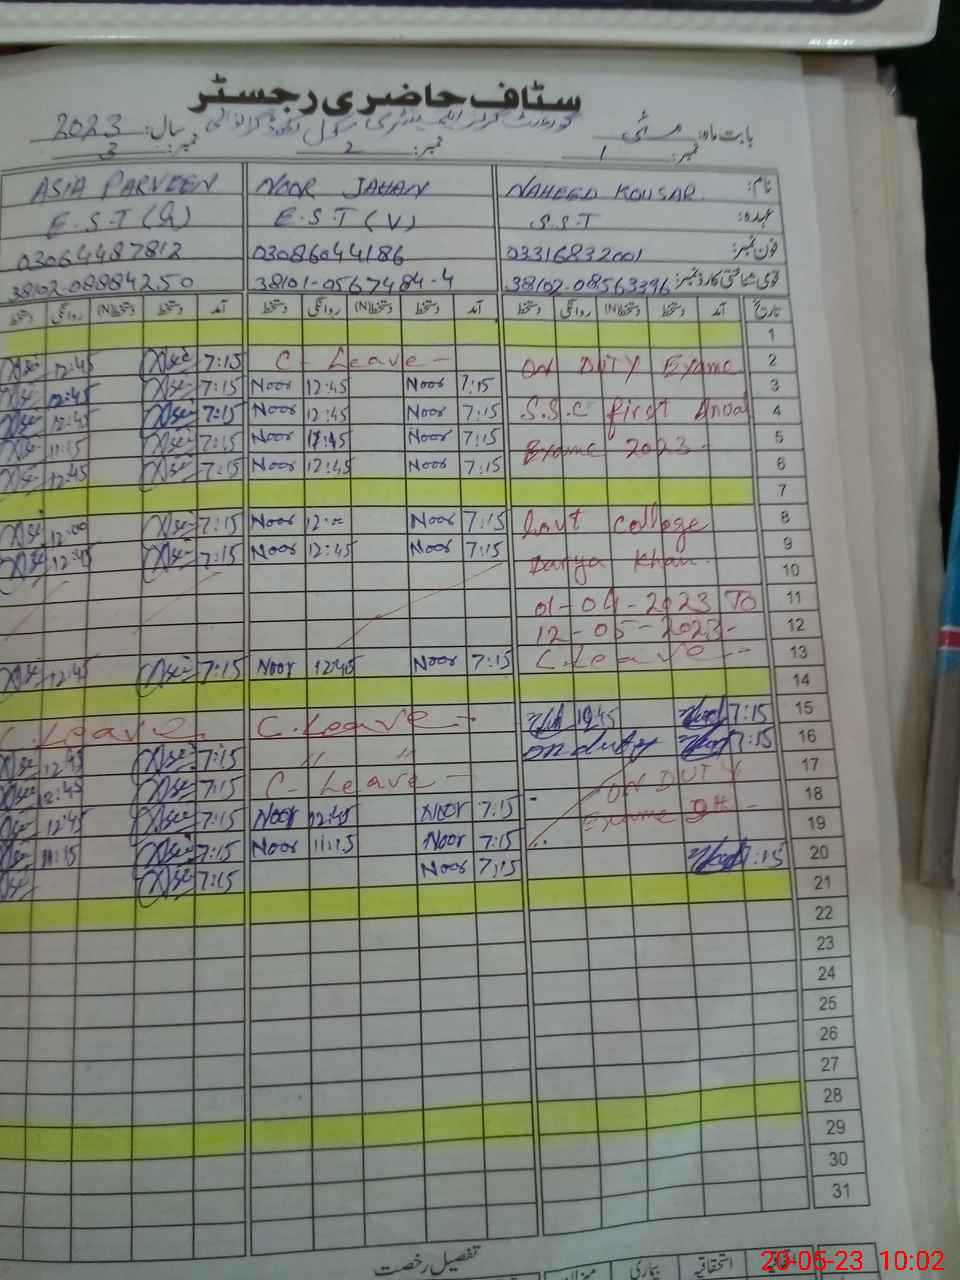 سٹاف حاضری رجسٹر
بابت ماہ: مئی گورنمنٹ گرلز ایلیمنٹری سکول سال: 2023
نمبر: 1 نمبر: 2 نمبر: 3
نام: NAHEED KOUSAR NOOR JAHAN ASIA PARVEEN
عہدہ: S.S.T E.S.T (V) E.S.T
فون نمبر: 03316832001 03086044186 03064487812
قومی شناختی کارڈ نمبر: 38102-08563396 38101-0567484-4 38102-08884250
تاریخ آمد دستخط دستخط(N) روانگی دستخط آمد دستخط دستخط(N) روانگی دستخط آمد دستخط دستخط(N) روانگی دستخط
1
2 ON DUTY Exame C-Leave - 7:15 12:45
3 7:15 Noor 12:45 Noor 7:15 12:45
4 S.S.C first Anual 7:15 Noor 12:45 Noor 7:15 12:45
5 Exame 2023- 7:15 Noor Noor 7:15 11:15
6 7:15 Noor 12:45 Noor 7:15 12:45
7
8 Govt College 7:15 Noor 12:00 Noor 7:15 12:00
9 Darya Khan. 7:15 Noor 12:45 Noor 7:15 12:45
10
11 01-04-2023 To
12 12-05-2023-
13 C.Leave - 7:15 Noor 12:45 Noor 7:15 12:45
14
15 7:15 C.Leave - C.Leave
16 7:15 on duty " " 7:15 12:45
17 ON DUTY C-Leave - 7:15 12:45
18 Exame 9th - 7:15 Noor 12:45 Noor 7:15 12:45
19 7:15 Noor 11:15 Noor 7:15 11:15
20 7:15 7:15 Noor 7:15
21
22
23
24
25
26
27
28
29
30
31
تفصیل رخصت
اتفاقیہ استحقاقیہ بیماری میزان
20-05-23 10:02